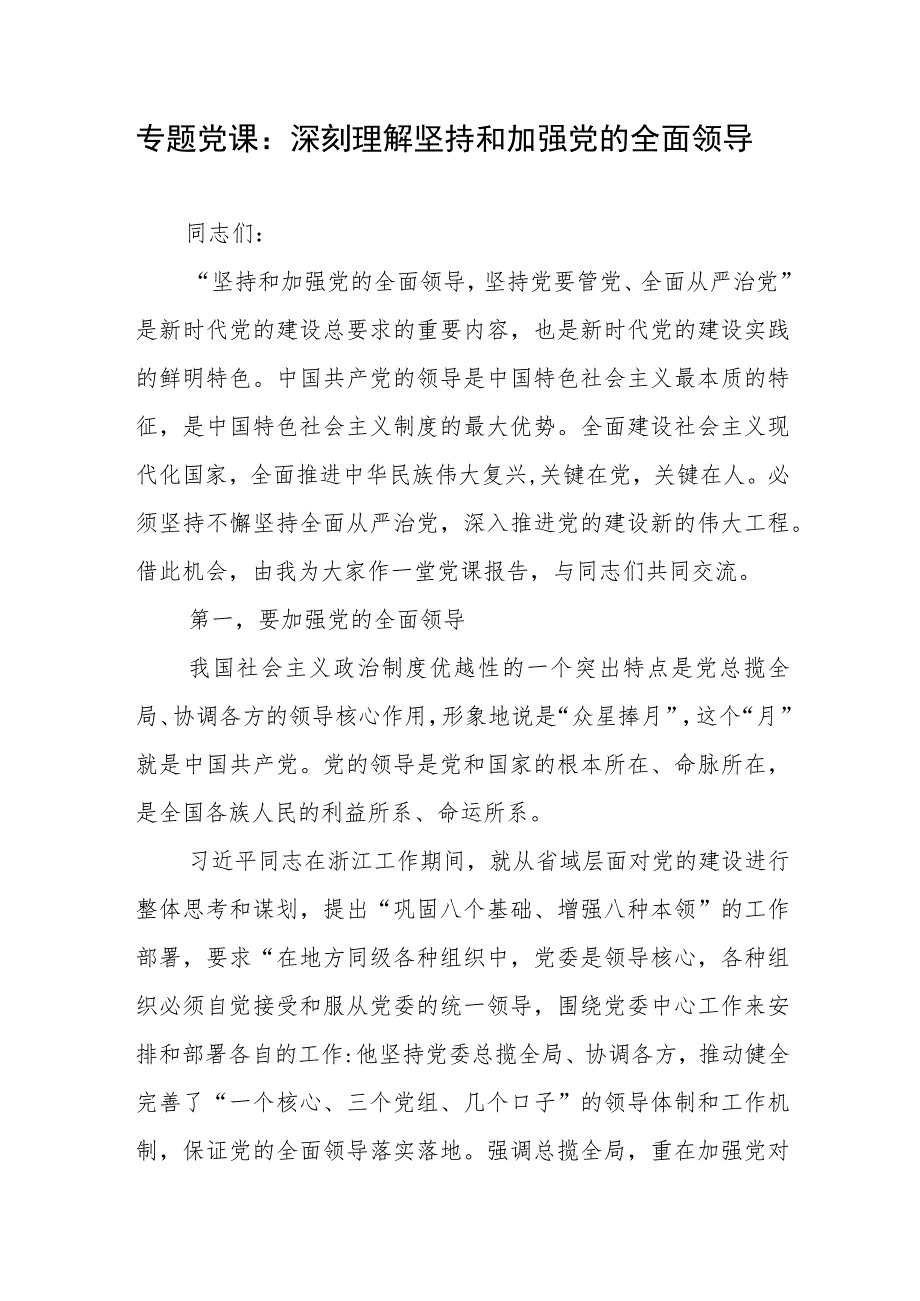 专题党课：深刻理解坚持和加强党的全面领导
同志们：
“坚持和加强党的全面领导，坚持党要管党、全面从严治党”
是新时代党的建设总要求的重要内容，也是新时代党的建设实践
的鲜明特色。中国共产党的领导是中国特色社会主义最本质的特
征，是中国特色社会主义制度的最大优势。全面建设社会主义现
代化国家，全面推进中华民族伟大复兴,关键在党，关键在人。必
须坚持不懈坚持全面从严治党，深入推进党的建设新的伟大工程。
借此机会，由我为大家作一堂党课报告，与同志们共同交流。
第一，要加强党的全面领导
我国社会主义政治制度优越性的一个突出特点是党总揽全
局、协调各方的领导核心作用,形象地说是“众星捧月”,这个“月”
就是中国共产党。党的领导是党和国家的根本所在、命脉所在，
是全国各族人民的利益所系、命运所系。
习近平同志在浙江工作期间，就从省域层面对党的建设进行
整体思考和谋划，提出“巩固八个基础、增强八种本领”的工作
部署，要求“在地方同级各种组织中，党委是领导核心，各种组
织必须自觉接受和服从党委的统一领导，围绕党委中心工作来安
排和部署各自的工作:他坚持党委总揽全局、协调各方，推动健全
完善了“一个核心、三个党组、几个口子”的领导体制和工作机
制，保证党的全面领导落实落地。强调总揽全局，重在加强党对